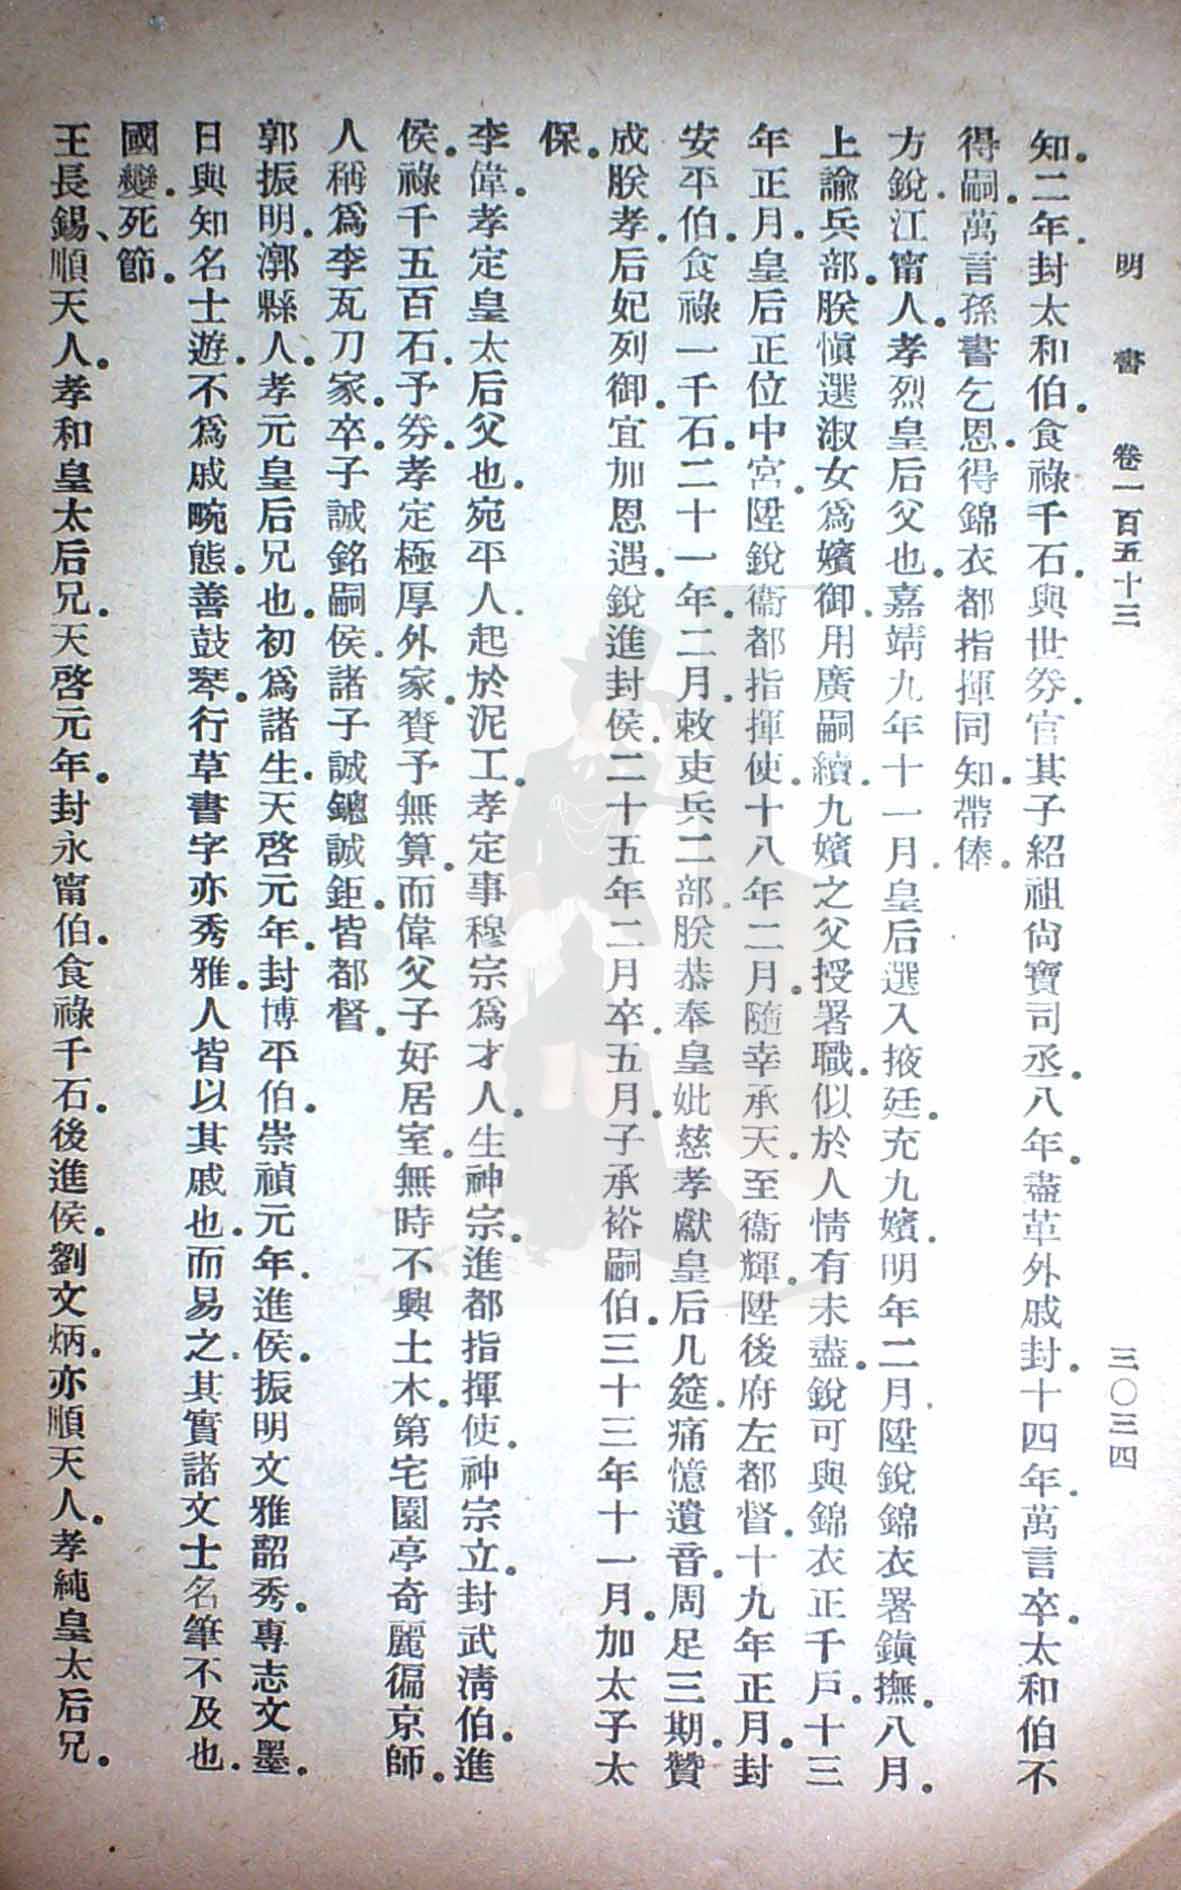 明書 卷一百五十三 三〇三四
知。二年。封太和伯。食祿千石。與世券。官其子紹祖尙寶司丞。八年。盡革外戚封。十四年。萬言卒。太和伯不
得嗣。萬言孫書乞恩。得錦衣都指揮同知。帶俸。
方銳。江甯人。孝烈皇后父也。嘉靖九年十一月。皇后選入掖廷。充九嬪。明年二月。陞銳錦衣署鎮撫。八月。
上諭兵部。朕愼選淑女爲嬪御。用廣嗣續。九嬪之父授署職。似於人情有未盡。銳可與錦衣正千戶。十三
年正月。皇后正位中宮。陞銳衞都指揮使。十八年二月。隨幸承天。至衞輝。陞後府左都督。十九年正月。封
安平伯。食祿一千石。二十一年二月。敕吏兵二部。朕恭奉皇妣慈孝獻皇后几筵。痛憶遺音。周足三期。贊
成朕孝。后妃列御。宜加恩遇。銳進封侯。二十五年二月卒。五月。子承裕嗣伯。三十三年十一月。加太子太
保。
李偉。孝定皇太后父也。宛平人。起於泥工。孝定事穆宗爲才人。生神宗。進都指揮使。神宗立。封武淸伯。進
侯。祿千五百石。予券。孝定極厚外家。賚予無算。而偉父子好居室。無時不興土木。第宅園亭奇麗徧京師。
人稱爲李瓦刀家。卒。子誠銘嗣侯。諸子誠鏓誠鉅。皆都督。
郭振明。漷縣人。孝元皇后兄也。初爲諸生。天啓元年。封博平伯。崇禎元年。進侯。振明文雅韶秀。專志文墨。
日與知名士遊。不爲戚畹態。善鼓琴。行草書字亦秀雅。人皆以其戚也。而易之。其實諸文士名筆不及也。
國變。死節。
王長錫、順天人。孝和皇太后兄。天啓元年。封永甯伯。食祿千石。後進侯。劉文炳。亦順天人。孝純皇太后兄。